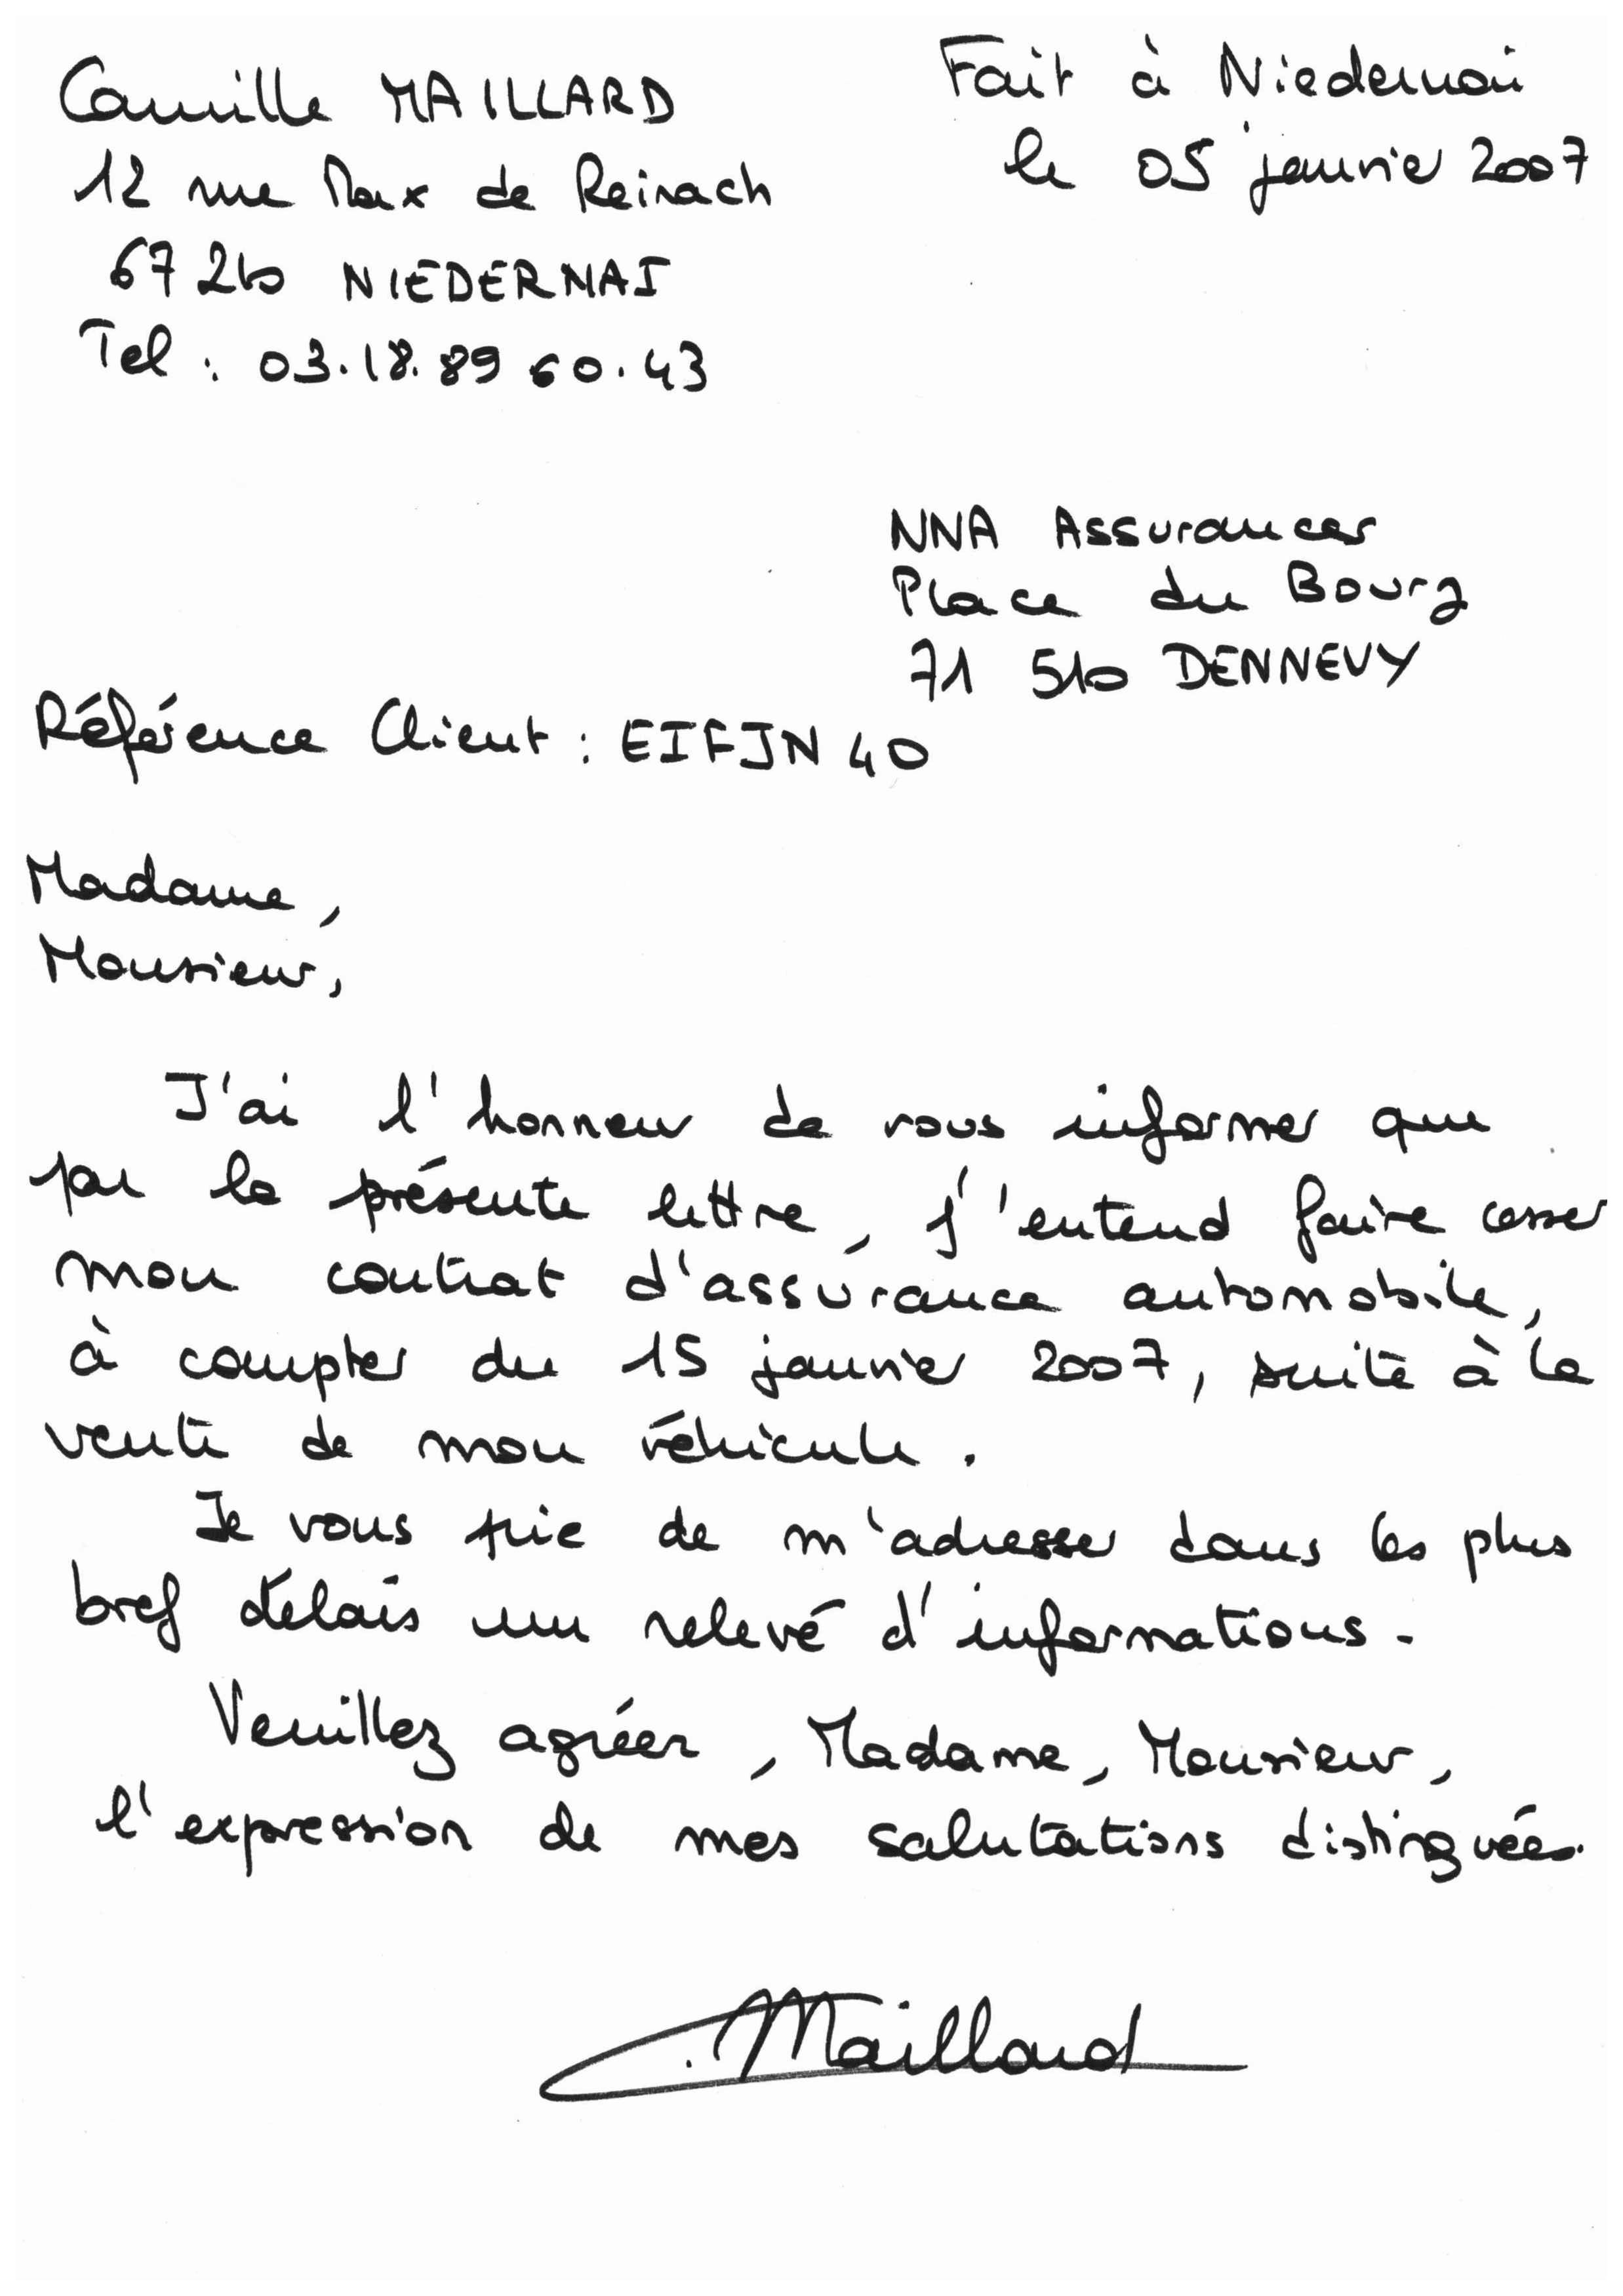 Camille MAILLARD
12 rue Max de Reinach
67210 NIEDERNAI
Tel : 03.18.89 60.43
Fait à Niedernai
le 05 janvier 2007
NNA Assurances
Place du Bourg
71 510 DENNEVY
Référence Client : EIFJN 40
Madame,
Monsieur,
J'ai l'honneur de vous informer que
par la présente lettre, j'entend faire cesser
mon contrat d'assurance automobile,
à compter du 15 janvier 2007, suite à la
vente de mon véhicule.
Je vous prie de m'adresser dans les plus
bref délais un relevé d'informations.
Veuillez agréer, Madame, Monsieur,
l'expression de mes salutations distinguées.
Maillard